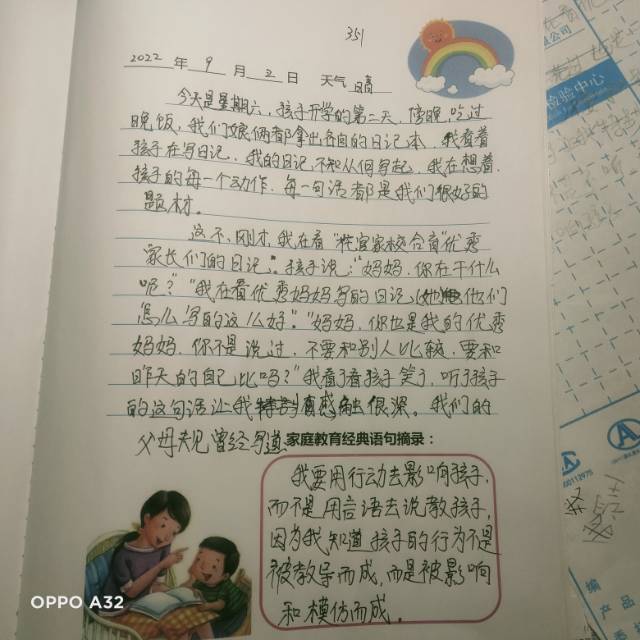 351
2022 年 9 月 2 日 天气 晴
今天是星期六，孩子开学的第二天，傍晚，吃过
晚饭，我们娘俩都拿出各自的日记本，我看着
孩子在写日记，我的日记，不知从何写起，我在想着，
孩子的每一个动作，每一句话都是我们很好的
题材。
这不，刚才，我在看"胜宜家校合育"优秀
家长们的日记。孩子说："妈妈，你在干什么
呢？""我在看优秀妈妈写的日记，他们
怎么写的这么好。""妈妈，你也是我的优秀
妈妈，你不是说过，不要和别人比较，要和
昨天的自己比吗？"我看了看孩子笑了，听了孩子
的这句话让我感触很深。我们的
父母夫见曾经写道
家庭教育经典语句摘录：
我要用行动去影响孩子，
而不是用言语去说教孩子，
因为我知道孩子的行为不是
被教导而成，而是被影响
和模仿而成。
检验中心
公司
60112975
编
产 品
OPPO A32